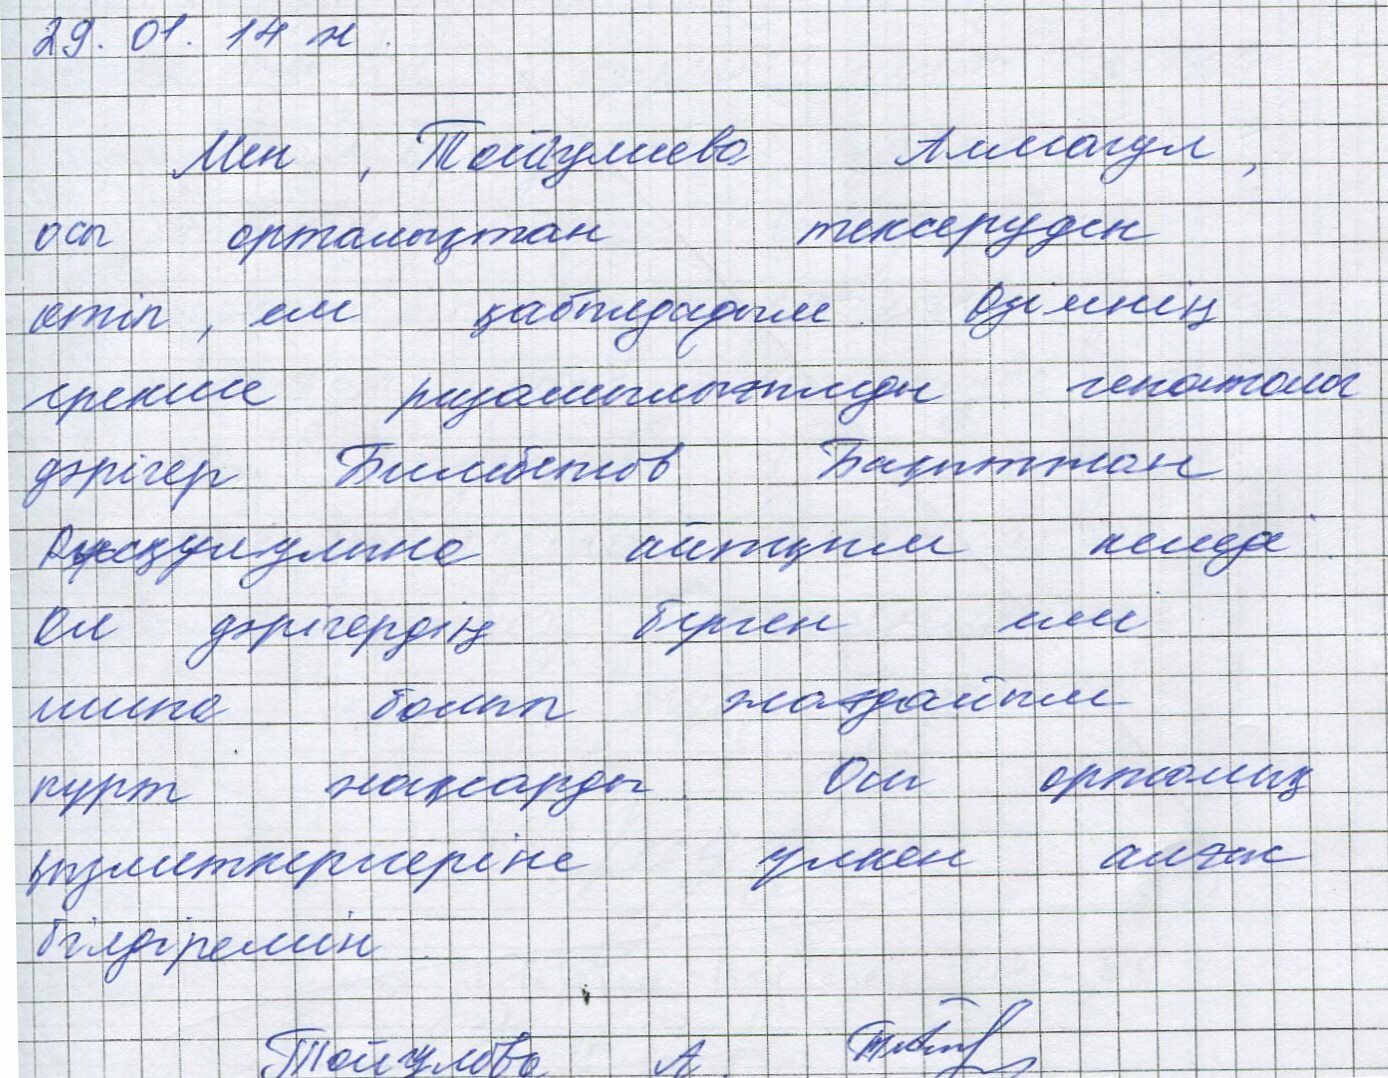 29. 01. 14 ж.
Мен, Тойгулиева Алмагул,
осы орталықтан тексеруден
өтіп, ем қабылдадым. Өзімнің
ерекше ризашылығымды гепатолог
дәрігер Бимбетов Бақытжан
айтқым келеді.
Ол дәрігердің берген емі
шипа болып жағдайым
күрт жақсарды. Осы орталық
қызметкерлеріне үлкен алғыс
білдіремін.
Тойгулова А.